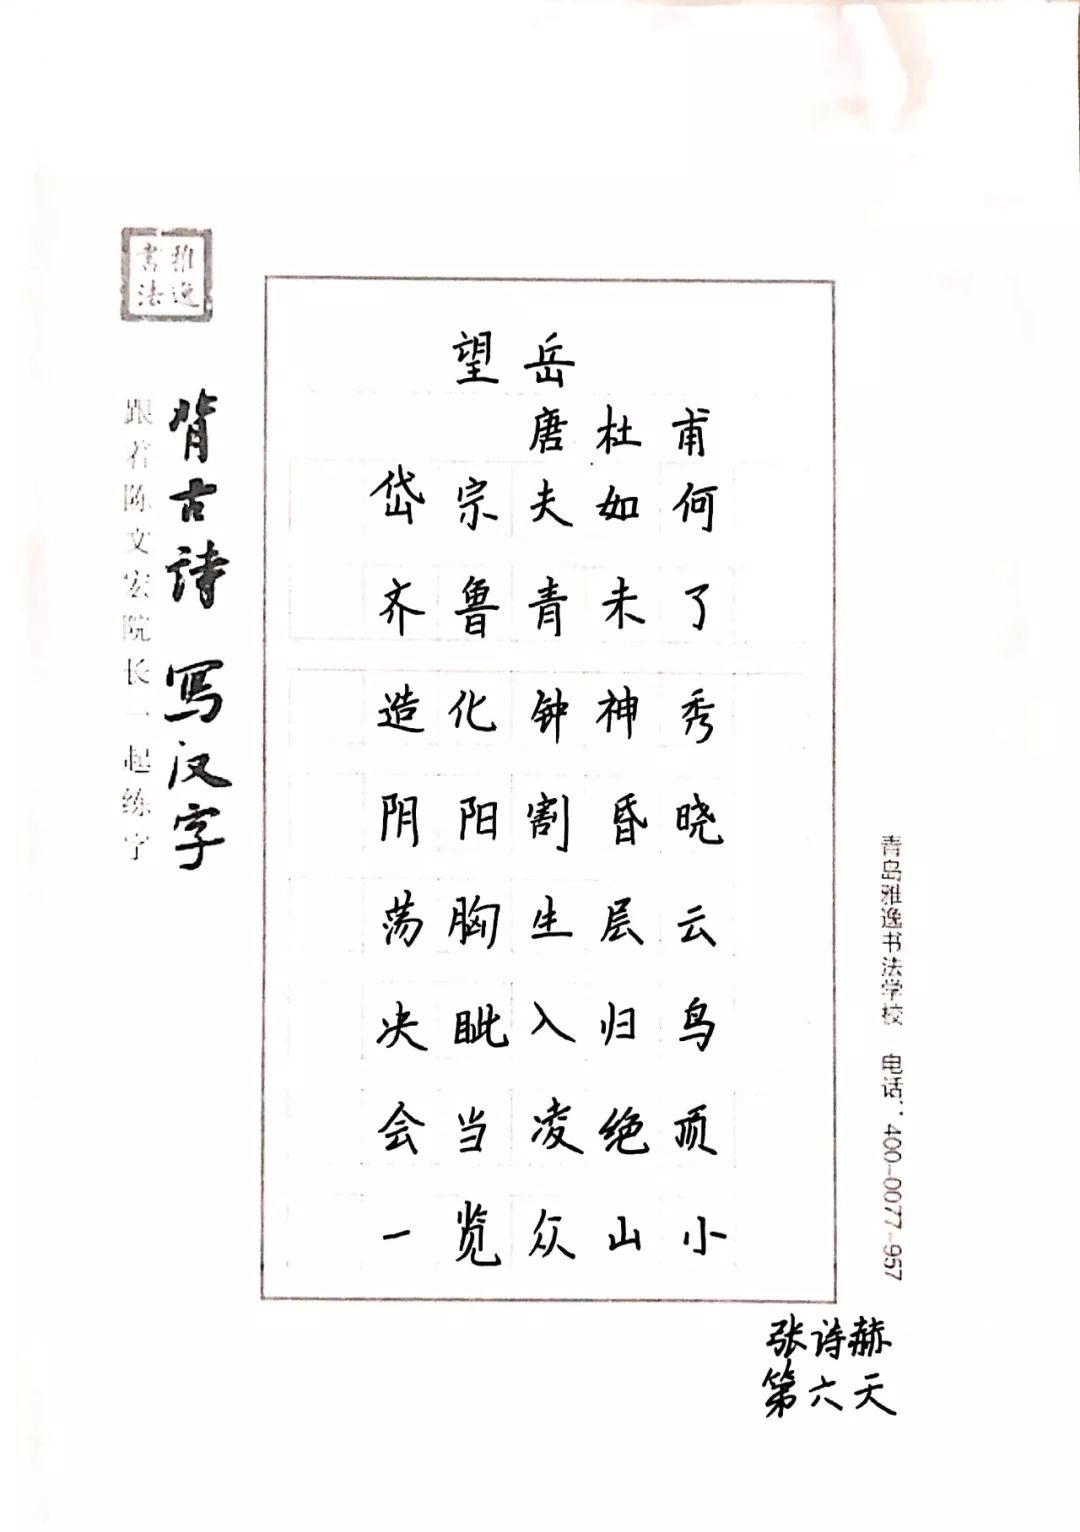 雅逸
书法
背古诗 写汉字
跟着陈文宏院长一起练字
望岳
唐杜甫
岱宗夫如何
齐鲁青未了
造化钟神秀
阴阳割昏晓
荡胸生层云
决眦入归鸟
会当凌绝顶
一览众山小
青岛雅逸书法学校 电话:400-0077-957
张诗赫
第六天